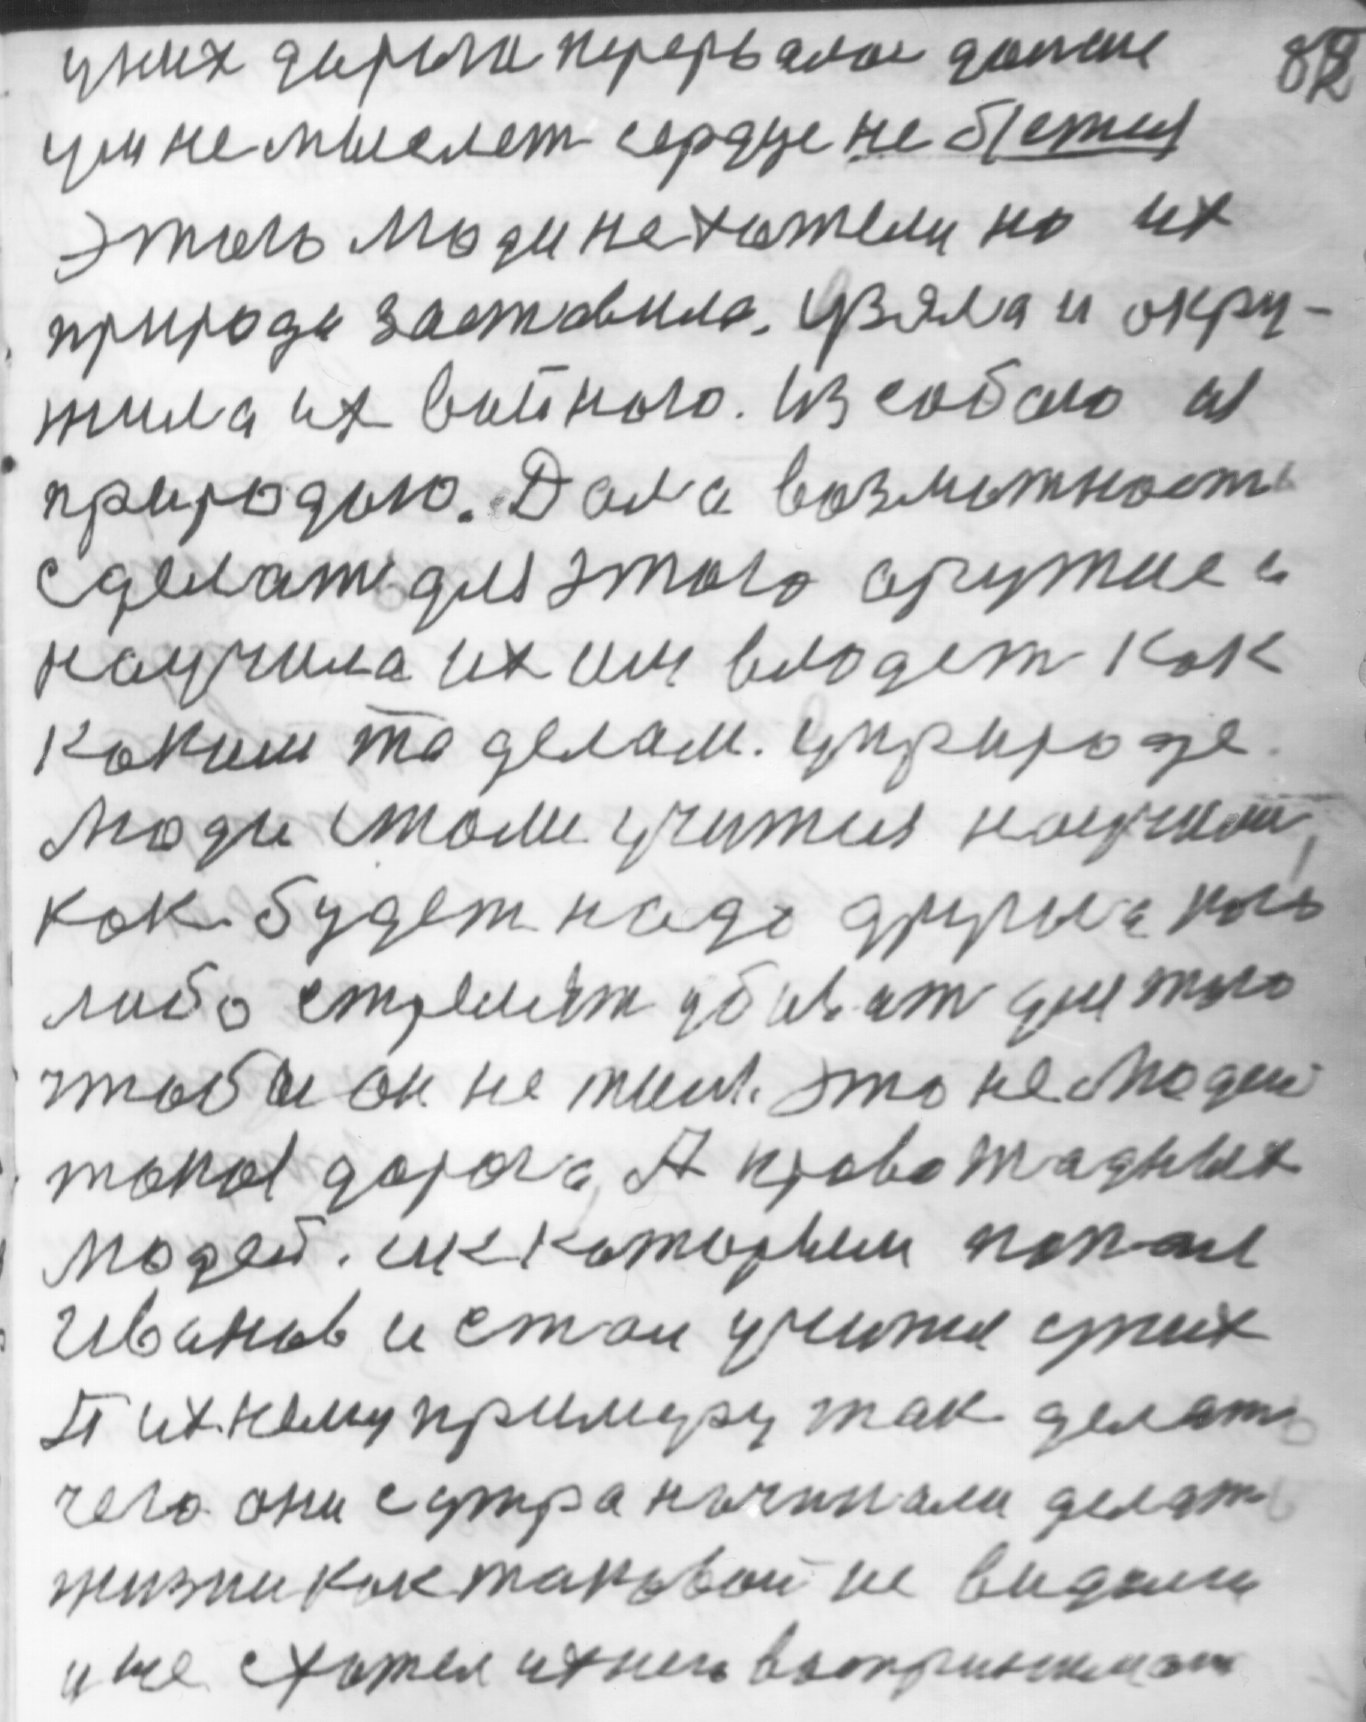 уних дорога перервалас дальше
ум не мыслет сердце не бїется
этого люди не хотели но их
природа заставила. Увзяла и окру-
жила их войною. Из собою и
природою. Дала возможность
сделать для этого оружие и
научила их им владет как
каким то делам. Уприроде.
люди стали учится наукой,
как будет надо другога кого
либо стрелят убиват для того
чтобы он не жил. Это не людей
такая дорога, А кровожадных
людей. ик которым попал
Иванов и стал учится униих
П ихнему примеру так делать
чего они сутра начинали делать
жизни как таковой не видали
и не схотел ихнего воспринимат